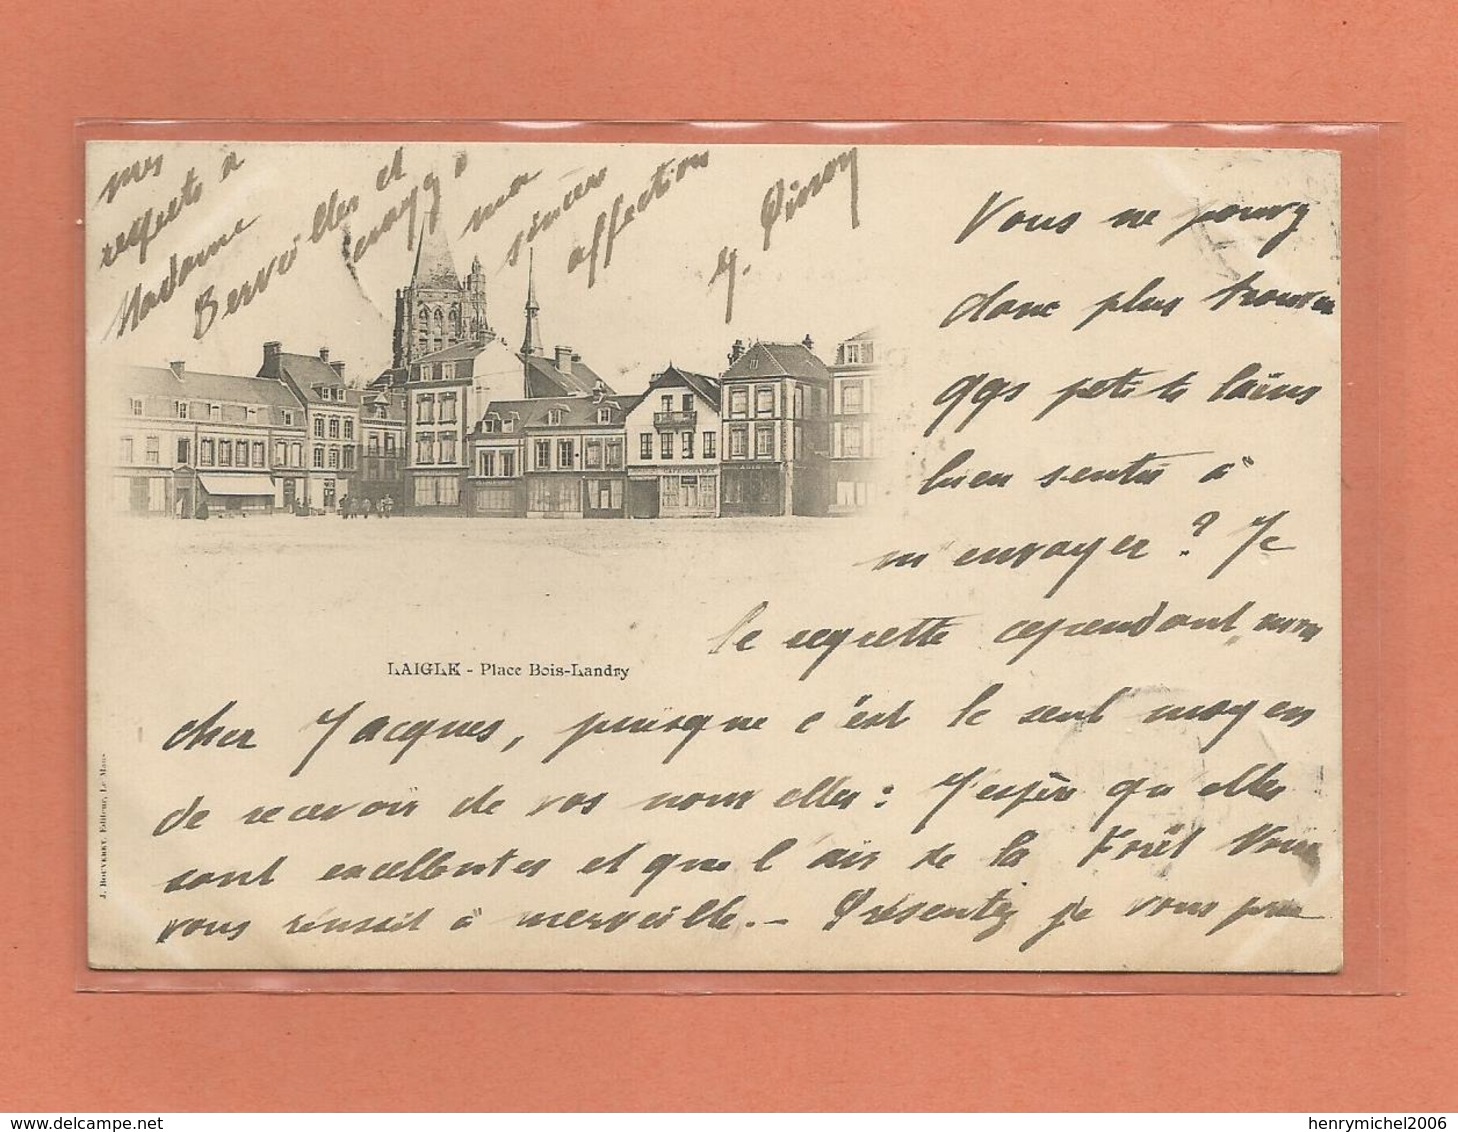 Vous ne pouvez
donc plus trouver
qqs petits
bien sentis à
m'envoyer ? Je
le regrette cependant, mon
cher Jacques, puisque c'est le seul moyen
de recevoir de vos nouvelles : J'espère qu'elles
sont excellentes et que l'air de la Forêt Vous
vous réussit à merveille. — Présentez je vous prie
mes
respects à
Madame
Bervilles et
croyez à
ma
sincère
affection
LAIGLE - Place Bois-Landry
J. BOUVERET, Editeur, Le Mans
delcampe.net
henrymichel2006